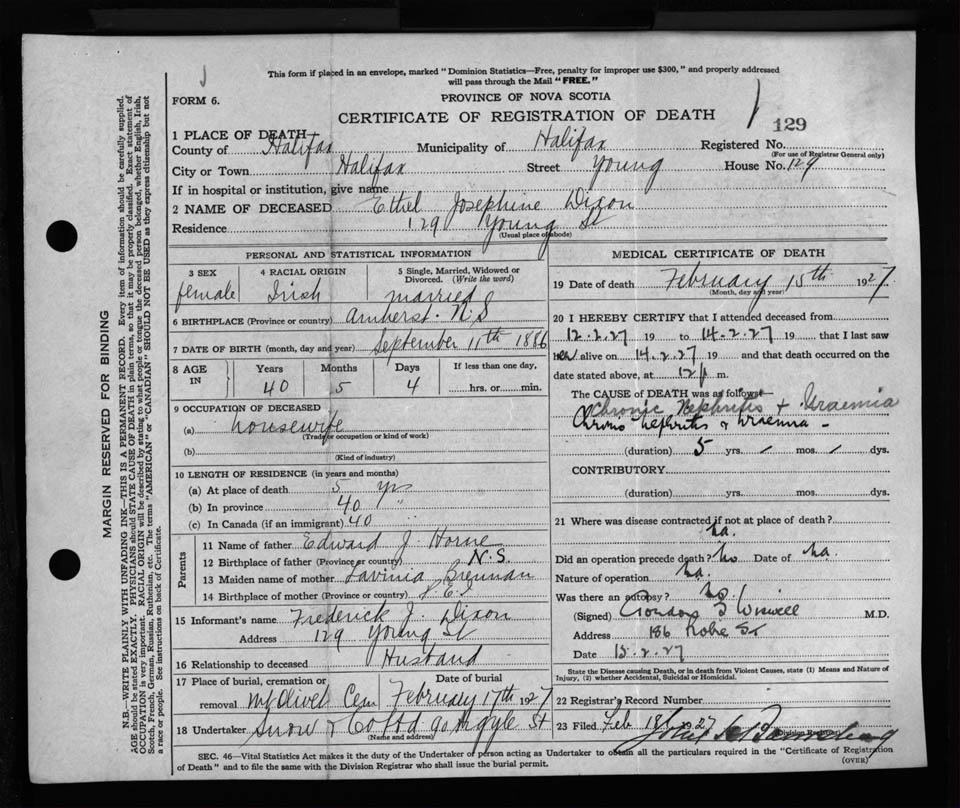 This form if placed in an envelope, marked "Dominion Statistics—Free, penalty for improper use $300," and properly addressed
will pass through the Mail "FREE."
FORM 6.
PROVINCE OF NOVA SCOTIA
CERTIFICATE OF REGISTRATION OF DEATH
129
1 PLACE OF DEATH
County of Halifax Municipality of Halifax Registered No.
(For use of Registrar General only)
City or Town Halifax Street Young House No. 129
If in hospital or institution, give name
2 NAME OF DECEASED Ethel Josephine Dixon
Residence 129 Young St
(Usual place of abode)
PERSONAL AND STATISTICAL INFORMATION
3 SEX 4 RACIAL ORIGIN 5 Single, Married, Widowed or Divorced. (Write the word)
female Irish married
6 BIRTHPLACE (Province or country) Amherst. N.S
7 DATE OF BIRTH (month, day and year) September 11th 1886
8 AGE IN Years Months Days If less than one day,
40 5 4 hrs. or min.
9 OCCUPATION OF DECEASED
(a) housewife
(Trade or occupation or kind of work)
(b)
(Kind of industry)
10 LENGTH OF RESIDENCE (in years and months)
(a) At place of death 5 yrs
(b) In province 40 "
(c) In Canada (if an immigrant) 40 "
Parents
11 Name of father Edward J. Horne
12 Birthplace of father (Province or country) N.S.
13 Maiden name of mother Lavinia Brennan
14 Birthplace of mother (Province or country) P.E.I
15 Informant's name Frederick J. Dixon
Address 129 Young St
16 Relationship to deceased Husband
17 Place of burial, cremation or removal Date of burial
Mt Olivet Cem February 17th 1927
18 Undertaker Snow & Co Ltd 90 Argyle St
(Name and address)
MEDICAL CERTIFICATE OF DEATH
19 Date of death February 15th 1927
(Month, day and year)
20 I HEREBY CERTIFY that I attended deceased from
12.2.27 19 to 14.2.27 19 that I last saw
her alive on 14.2.27 19 and that death occurred on the
date stated above, at 12 p m.
The CAUSE of DEATH was as follows
Chronic Nephritis + Uraemia
Chronic Nephritis & Uraemia -
(duration) 5 yrs. / mos. / dys.
CONTRIBUTORY
(duration) yrs. mos. dys.
21 Where was disease contracted if not at place of death?
na.
Did an operation precede death? no Date of na.
Nature of operation na.
Was there an autopsy? no
(Signed) Gordon Wiswell M.D.
Address 186 Robie St
Date 15.2.27
State the Disease causing Death, or in death from Violent Causes, state (1) Means and Nature of
Injury, (2) whether Accidental, Suicidal or Homicidal.
22 Registrar's Record Number
23 Filed Feb 18 1927
(Division Registrar)
SEC. 46—Vital Statistics Act makes it the duty of the Undertaker or person acting as Undertaker to obtain all the particulars required in the "Certificate of Registration
of Death" and to file the same with the Division Registrar who shall issue the burial permit.
(OVER)
MARGIN RESERVED FOR BINDING
N.B.—WRITE PLAINLY WITH UNFADING INK—THIS IS A PERMANENT RECORD. Every item of information should be carefully supplied.
AGE should be stated EXACTLY. PHYSICIANS should STATE CAUSE OF DEATH in plain terms, so that it may be properly classified. Exact statement of
OCCUPATION is very important. RACIAL ORIGIN will be described by stating to what people or tongue the deceased person belonged, whether English, Irish,
Scotch, French, German, Russian, Ruthenian, etc. The terms "AMERICAN" or "CANADIAN" SHOULD NOT BE USED as they express citizenship but not
a race or people. See instructions on back of Certificate.